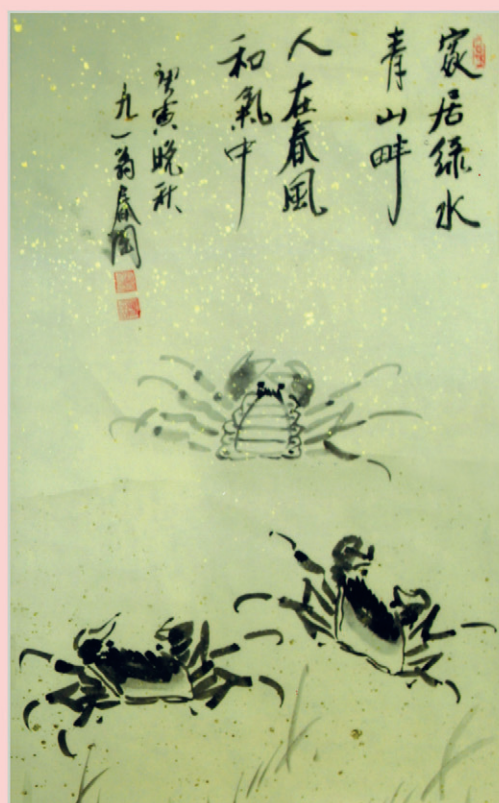 家居綠水
青山畔
人在春風
和氣中
庚寅晚秋
九一翁春園